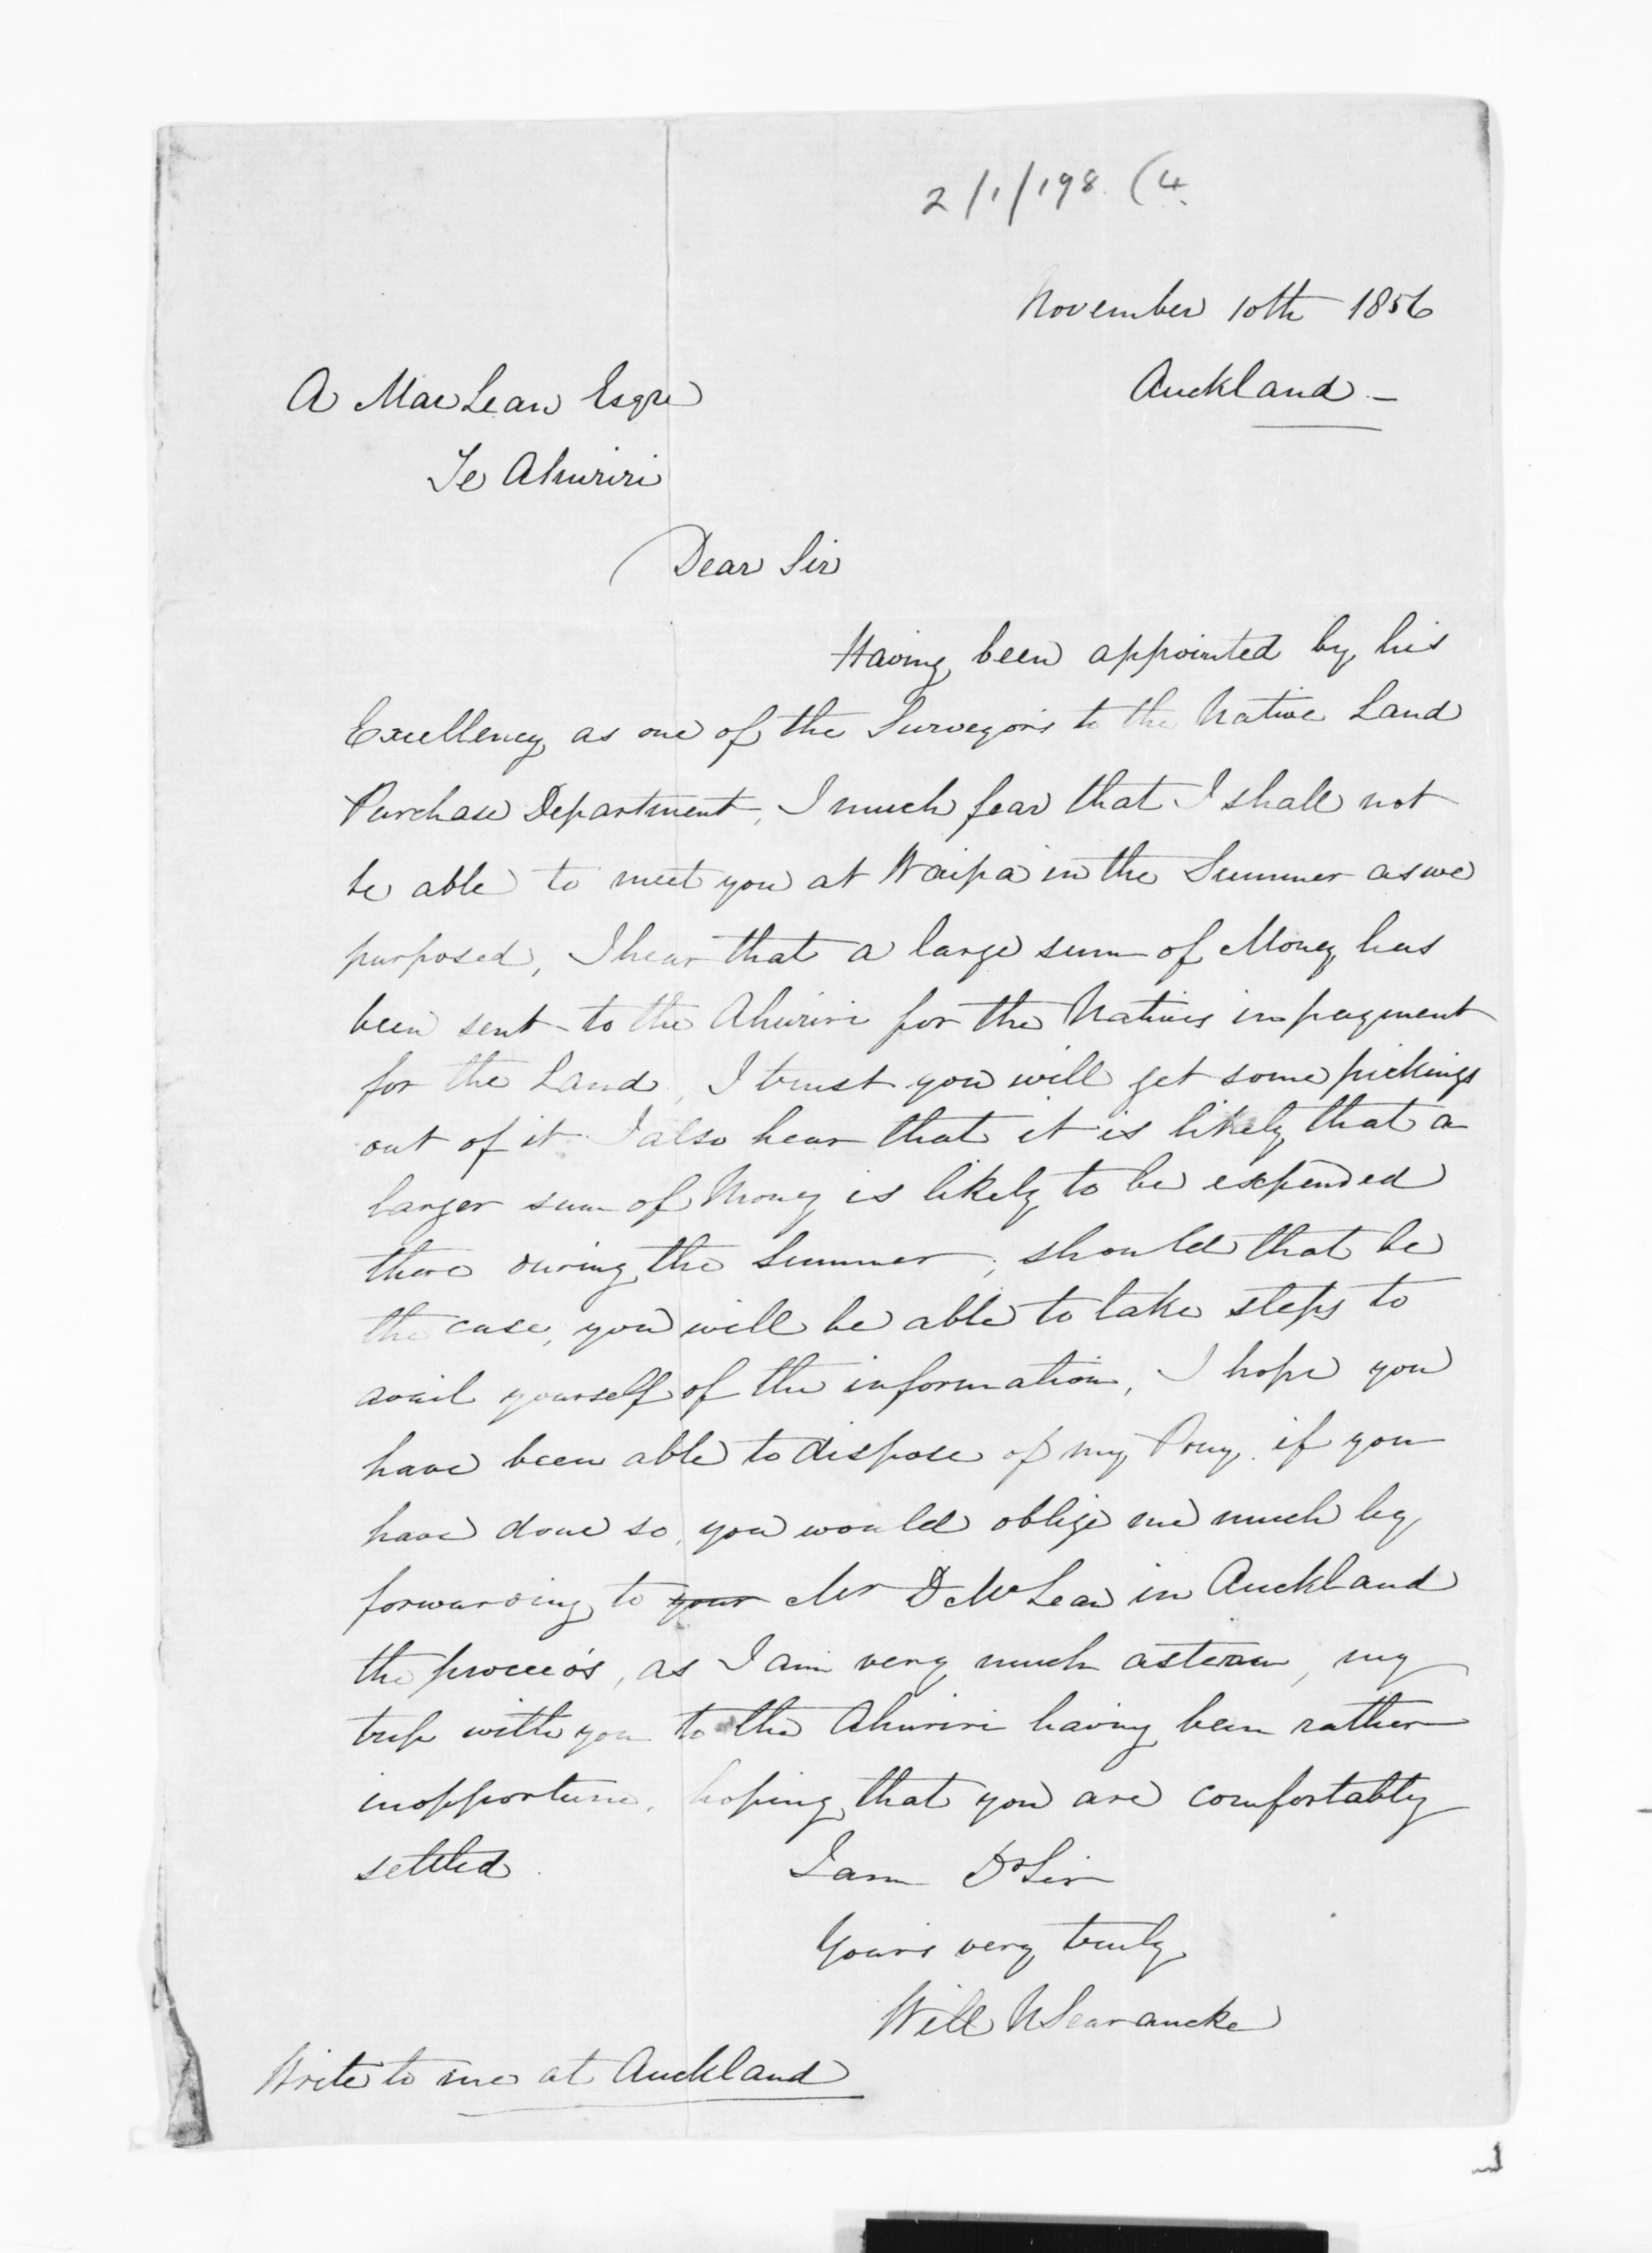 2/1/198 (4.
November 10th 1856
Auckland -
A MacLean Esqre
Te Ahuriri
Dear Sir
Having been appointed by his
Excellency as one of the Surveyors to the Native Land
Purchase Department, I much fear that I shall not
be able to meet you at Waipa in the Summer as we
purposed, I hear that a large sum of Money has
been sent to the Ahuriri for the Natives in payment
for the Land, I trust you will get some pickings
out of it. I also hear that it is likely that a
larger sum of Money is likely to be expended
there during the Summer; should that be
the case, you will be able to take steps to
avail yourself of the information, I hope you
have been able to dispose of my Pony. if you
have done so, you would oblige me much by
forwarding to your Mr D McLean in Auckland
the proceeds, as I am very much astern, my
trip with you to the Ahuriri having been rather
inopportune. hoping that you are comfortably
settled.
I am Dr Sir
Yours very truly
Will N Searancke
Write to me at Auckland